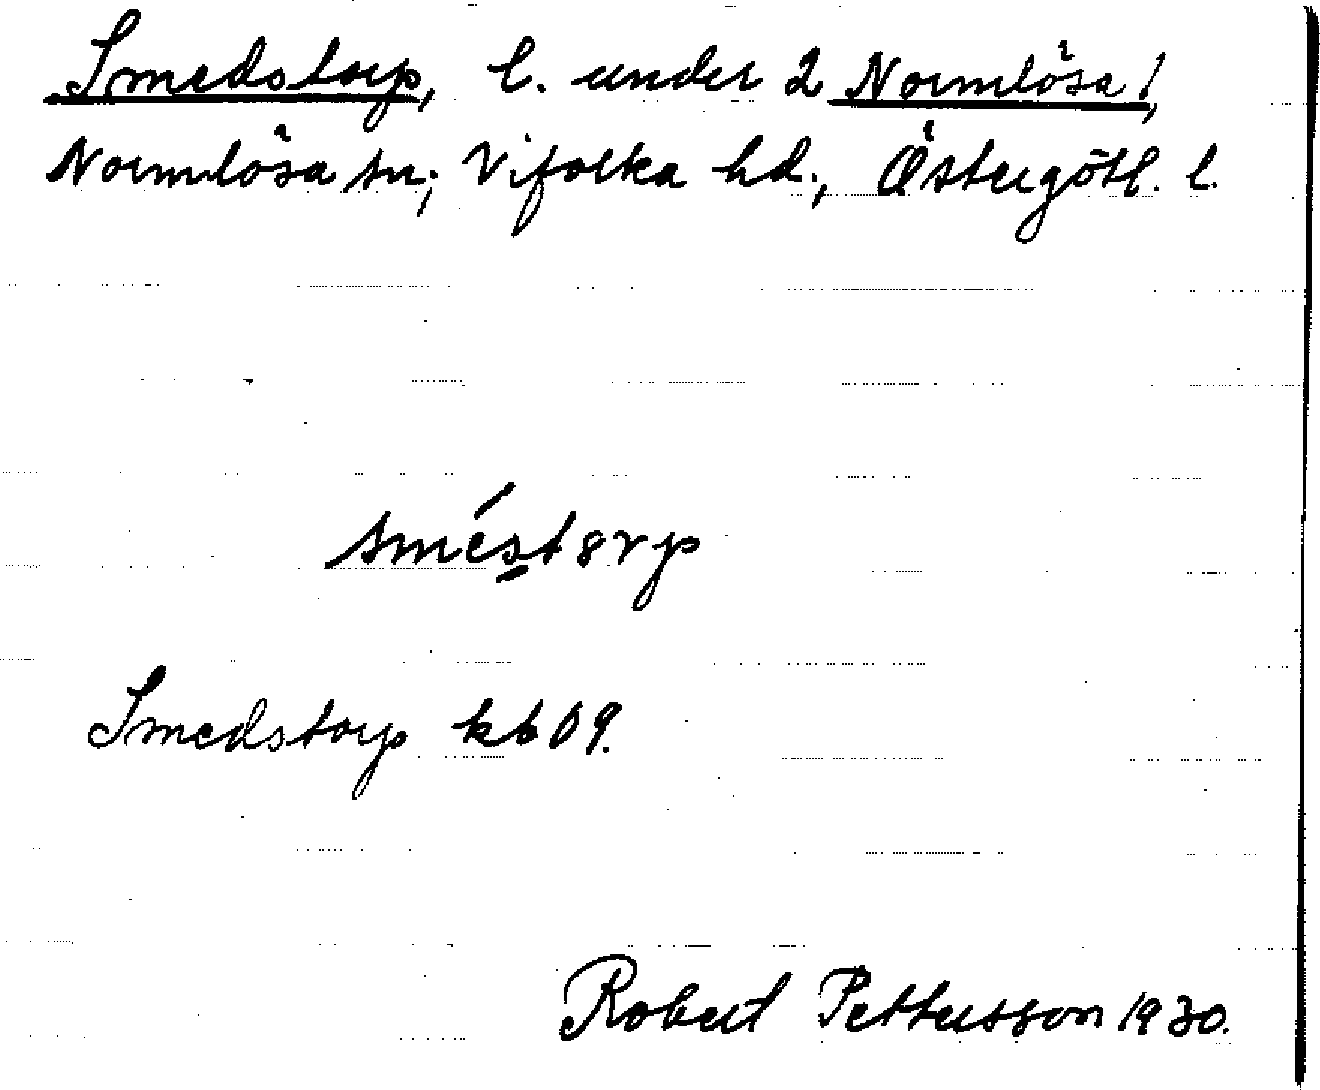 Smedstorp, l. under 2 Normlösa!,
Normlösa sn; Vifolka hd., Östergötl. l.
smést8rp
Smedstorp kb 09.
Robert Pettersson 1930.